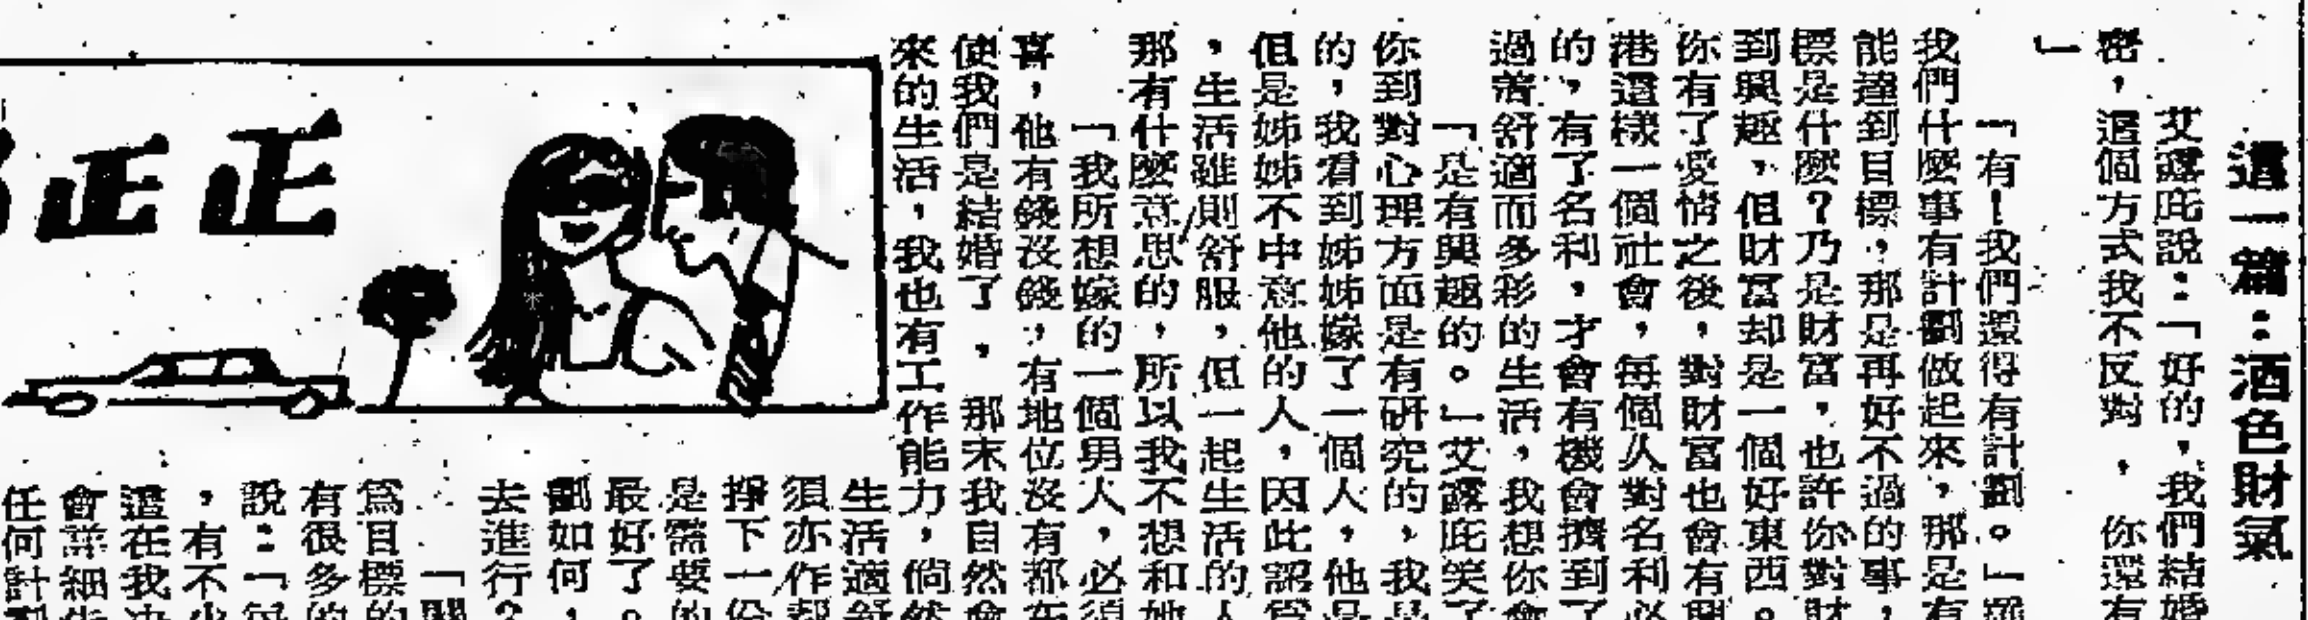 這一篇：酒色財氣
艾露庇說：「好的，我們結婚
密，這個方式我不反對，你還有
」
「有！我們還得有計劃。」
我們什麼事有計劃做起來，那是有
能達到目標，那是再好不過的事，
標是什麼？乃是財富，也許你對財
到興趣，但財富却是一個好東西。
你有了愛情之後，對財富也會有興
港這樣一個社會，每個人對名利必
的，有了名利，才會有機會擠到了
過着舒適而多彩的生活，我想你會
「是有興趣的。」艾露庇笑了
你到對心理方面是有研究的，我是
的，我看到姊姊嫁了一個人，他是
但是姊姊不中意他的人，因此認爲
，生活雖則舒服，但一起生活的人
那有什麼意思的，所以我不想和她
「我所想嫁的一個男人，必須
喜，他有錢沒錢，有地位沒有都在
使我們是結婚了，那末我自然會
來的生活，我也有工作能力，倘然
正正
生活適舒
須亦作
掙下一份
是需要的
最好了。
劃如何，
去進行？
「
爲目標的
有很多的
說：「每
，有不少
這在我決
會詳細告
任何計劃